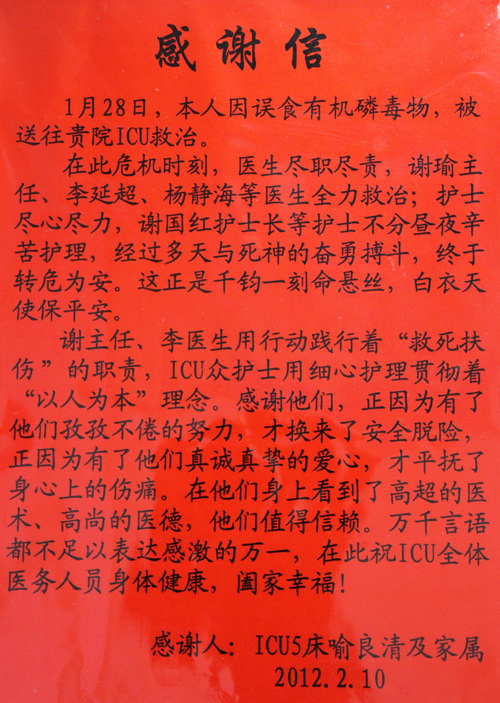 感谢信
1月28日，本人因误食有机磷毒物，被
送往贵院ICU救治。
在此危机时刻，医生尽职尽责，谢瑜主
任、李延超、杨静海等医生全力救治；护士
尽心尽力，谢国红护士长等护士不分昼夜辛
苦护理，经过多天与死神的奋勇搏斗，终于
转危为安。这正是千钧一刻命悬丝，白衣天
使保平安。
谢主任、李医生用行动践行着“救死扶
伤”的职责，ICU众护士用细心护理贯彻着
“以人为本”理念。感谢他们，正因为有了
他们孜孜不倦的努力，才换来了安全脱险，
正因为有了他们真诚真挚的爱心，才平抚了
身心上的伤痛。在他们身上看到了高超的医
术、高尚的医德，他们值得信赖。万千言语
都不足以表达感激的万一，在此祝ICU全体
医务人员身体健康，阖家幸福！
感谢人：ICU5床喻良清及家属
2012.2.10